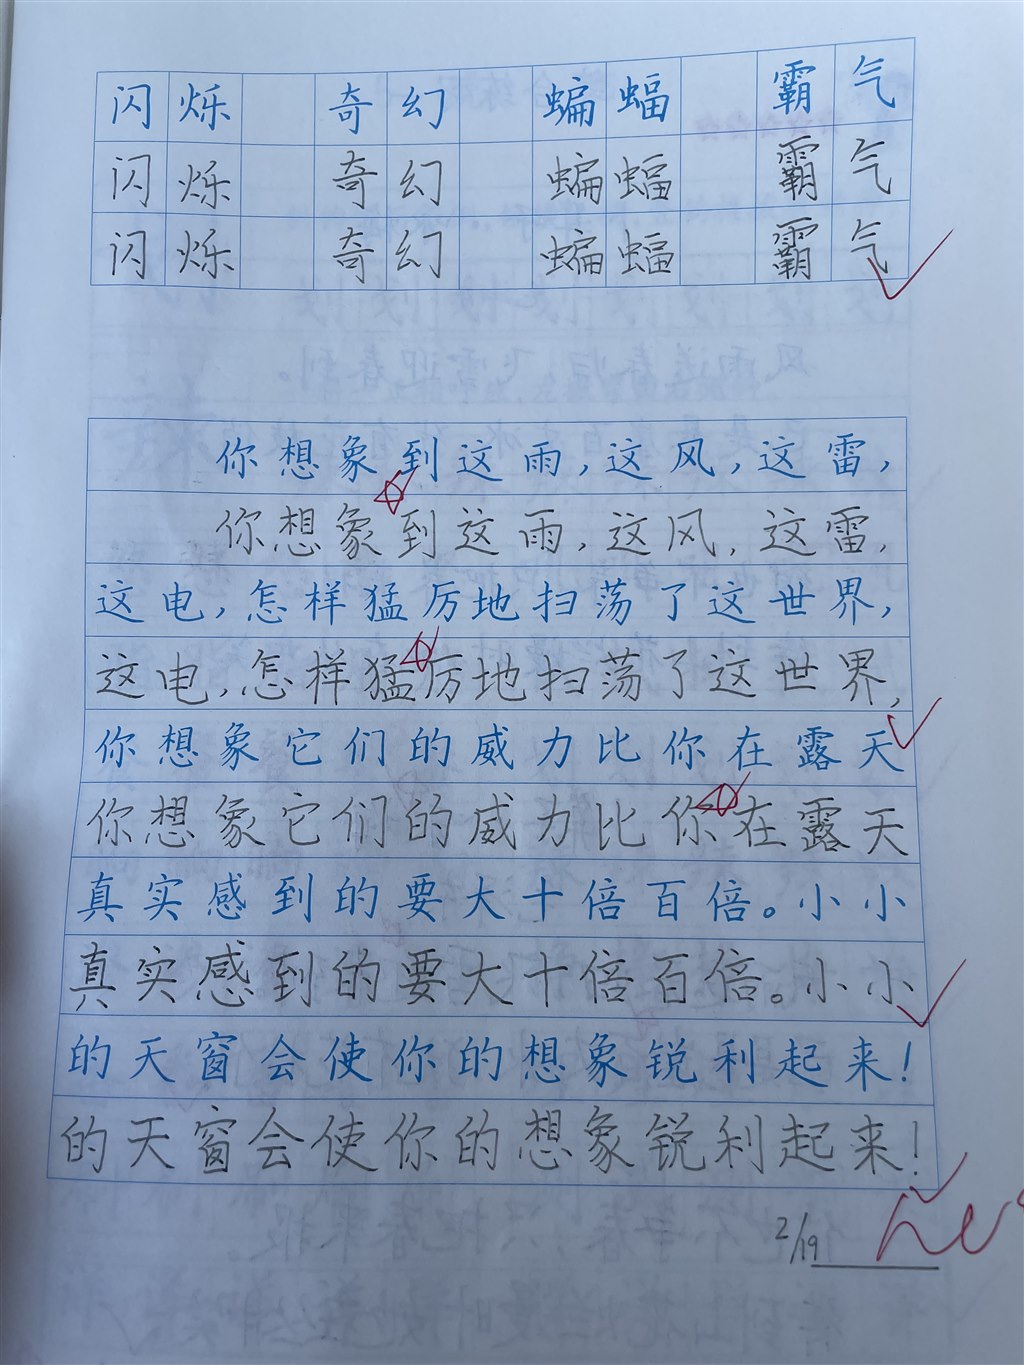 闪烁 奇幻 蝙蝠 霸气
闪烁 奇幻 蝙蝠 霸气
闪烁 奇幻 蝙蝠 霸气
你想象到这雨,这风,这雷,
你想象到这雨,这风,这雷,
这电,怎样猛厉地扫荡了这世界,
这电,怎样猛厉地扫荡了这世界,
你想象它们的威力比你在露天
你想象它们的威力比你在露天
真实感到的要大十倍百倍。小小
真实感到的要大十倍百倍。小小
的天窗会使你的想象锐利起来!
的天窗会使你的想象锐利起来!
2/19